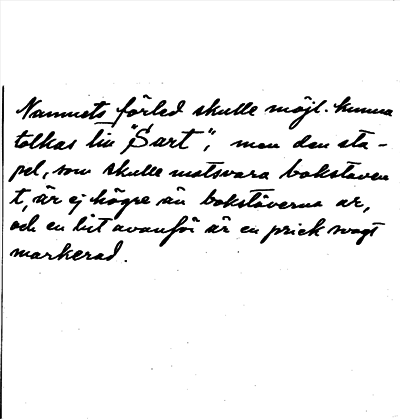 Namnets förled skulle möjl. kunna
tolkas till "Sart", men den sta-
pel, som skulle motsvara bokstaven
t, är ej högre än bokstäverna ar,
och en bit ovanför är en prick svagt
markerad.